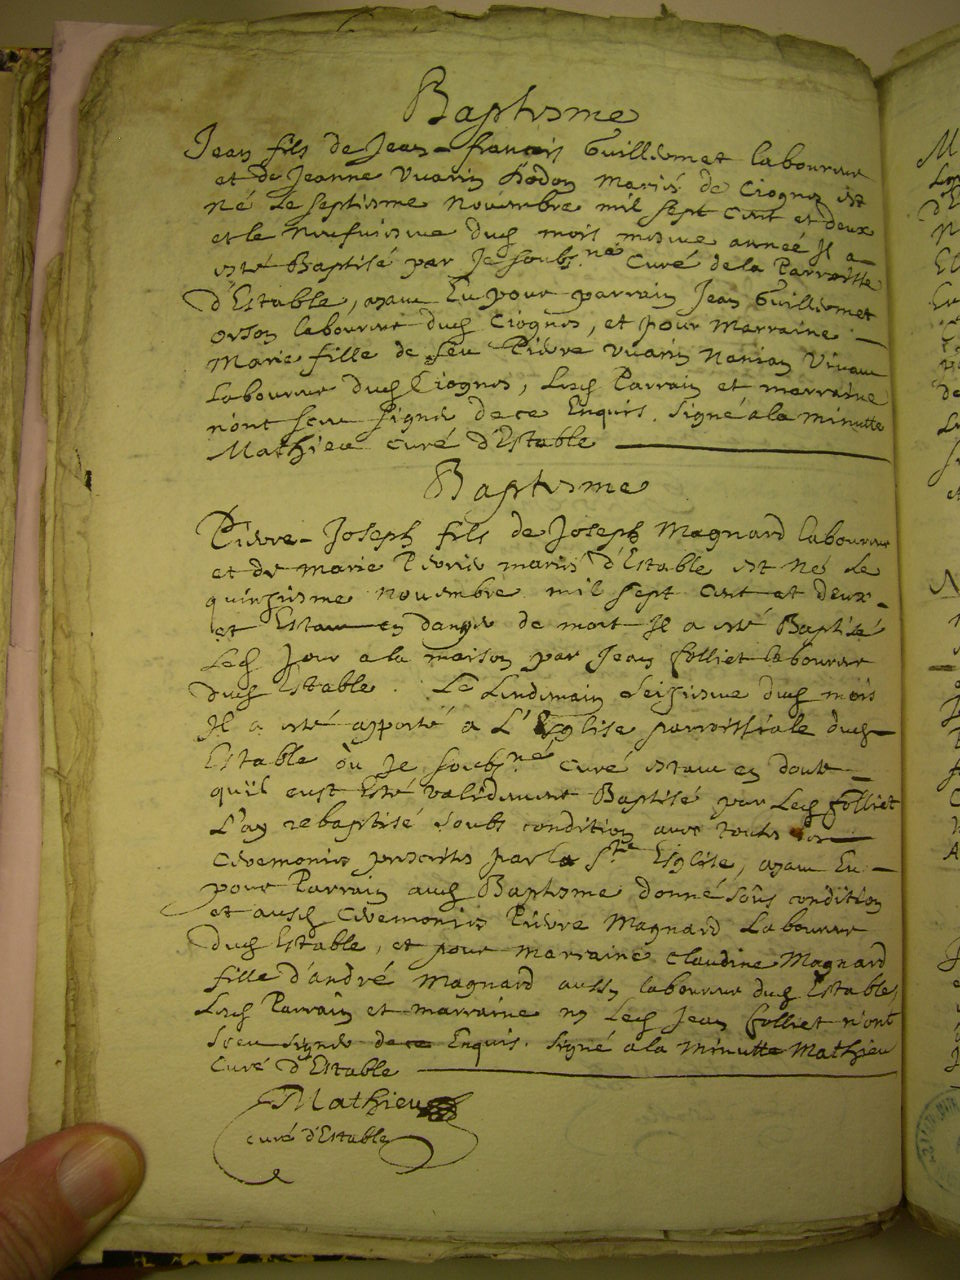 Baptisme
Jean fils de Jean-francois Guilliermet laboureur
et de Jeanne Vuarin mariés de Ciognes est
né le septiesme Novembre mil sept cent et deux
et le neufviesme dud mois mesme année Il a
esté Baptisé par Je soubs.né Curé de la Parroisse
d'Estable, ayant Eu pour parrain Jean Guilliermet
laboureur dud Ciognes, et pour Marraine
Marie fille de feu Pierre Vuarin vivant
Laboureur dud Ciognes, Lesd Parrain et marraine
n'ont sceu signer de ce Enquis. Signé a la minutte
Mathieu curé d'Estable
Baptisme
Pierre-Joseph fils de Joseph Magnard laboureur
et de marie mariés d'Estable est Né le
quinziesme novembre mil sept cent et deux
et Estant en danger de mort Il a esté Baptisé
Led Jour a la maison par Jean folliet laboureur
dud Estable. Le Lendemain seiziesme dud mois
Il a esté apporté a L'Esglise parroissiale dud
Estable où Je soubs.né curé estant en doute
qu'il eust Esté validement Baptisé par Led folliet
L'ay rebaptisé soubs condition avec toutes les
ceremonies prescrites par la S.te Esglise, ayant Eu
pour Parrain aud Baptisme donné sous condition
et ausd ceremonies Pierre Magnard Laboureur
dud Estable, et pour marraine claudine Magnard
fille d'andré Magnard aussy laboureur dud Estable
Lesd Parrain et marraine ny Led Jean folliet n'ont
sceu signer de ce Enquis. Signé a la Minutte Mathieu
Curé d'Estable
Mathieu
curé d'Estable